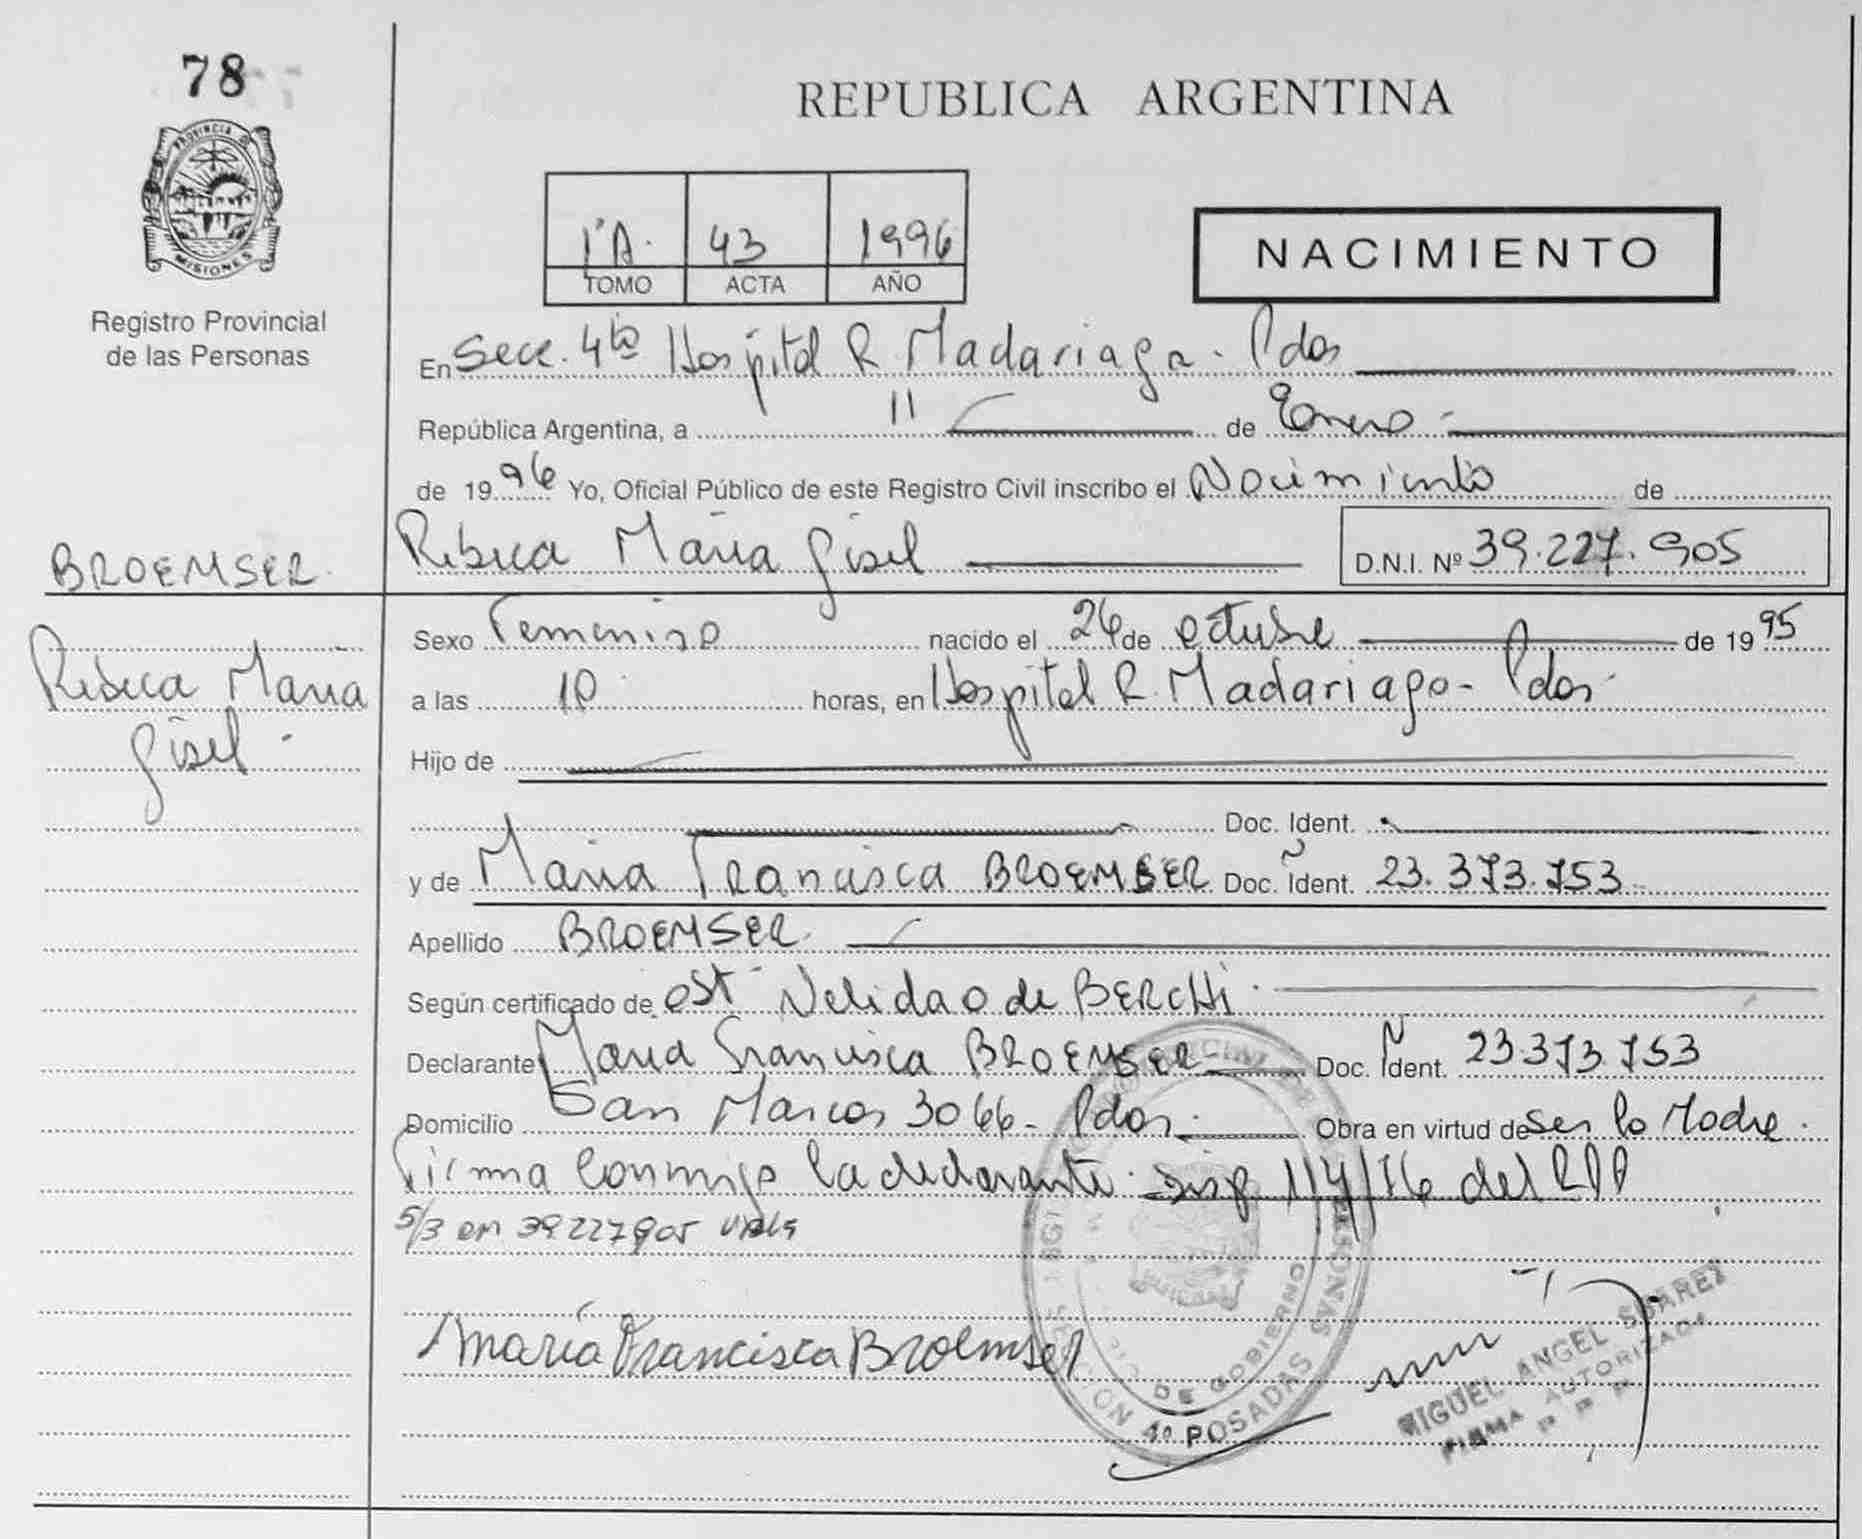 78
PROVINCIA DE
MISIONES
Registro Provincial
de las Personas
REPUBLICA ARGENTINA
1ºA. 43 1996
TOMO ACTA AÑO
NACIMIENTO
En Secc. 4ta Hospital R. Madariaga - Pdas
República Argentina, a 11 de Enero -
de 1996 Yo, Oficial Público de este Registro Civil inscribo el Nacimiento de
BROEMSER Rebeca María Gisel D.N.I. Nº 39.227.905
Rebeca María
Gisel -
Sexo Femenino nacido el 26 de octubre de 1995
a las 10 horas, en Hospital R. Madariaga - Pdas.
Hijo de
Doc. Ident.
y de María Francisca BROEMSER Doc. Ident. 23.373.753
Apellido BROEMSER
Según certificado de Ost Nelida O de BERCHI.
Declarante María Francisca BROEMSER Doc. Ident. 23.373.753
Domicilio San Marcos 3066 - Pdas. Obra en virtud de ser la Madre.
Firma conmigo la declarante. Disp 114/76 del RPP
5/3 em 39227905
María Francisca Broemser
SECCION 4º POSADAS
DE GOBIERNO
MIGUEL ANGEL SUAREZ
FIRMA AUTORIZADA